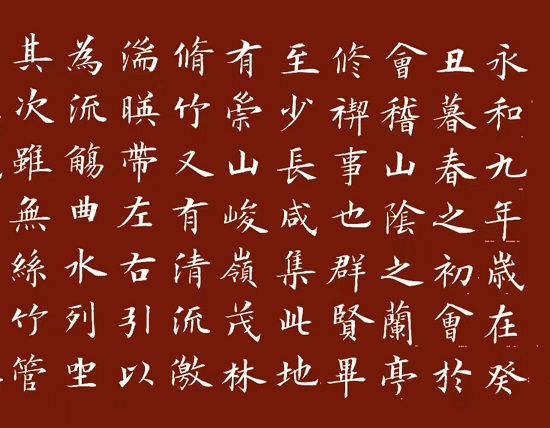 永和九年歲在癸
丑暮春之初會於
會稽山陰之蘭亭
修禊事也群賢畢
至少長咸集此地
有崇山峻嶺茂林
脩竹又有清流激
湍暎帶左右引以
為流觴曲水列坐
其次雖無絲竹管